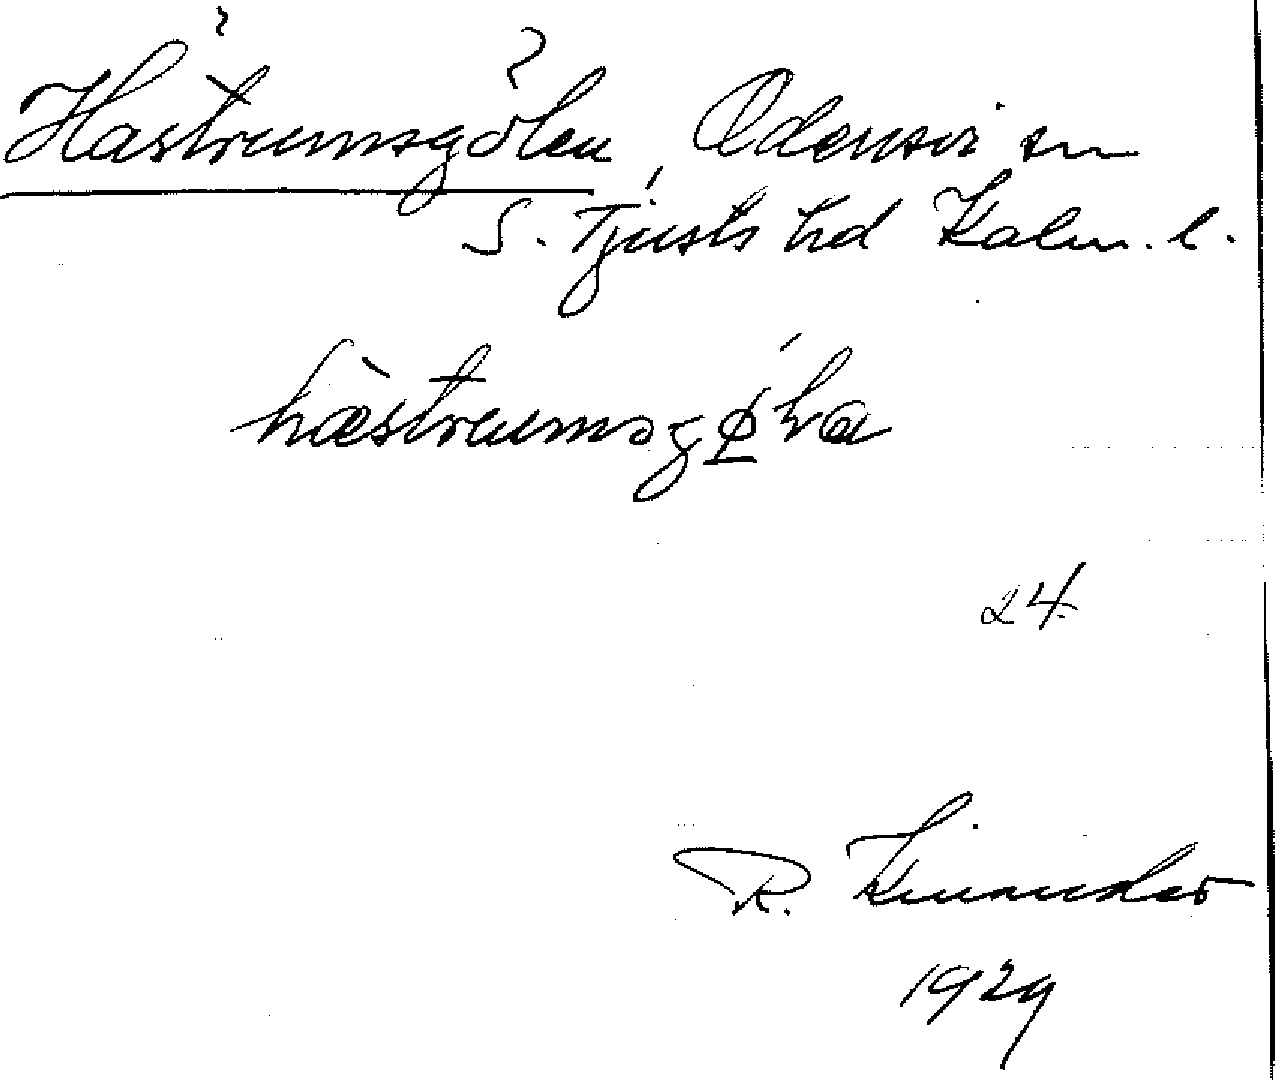 Hästrumsgölen, Odensvi sn
S. Tjusts hd Kalm. l.
hæstrumsgøla
24.
R. Kinander
1929